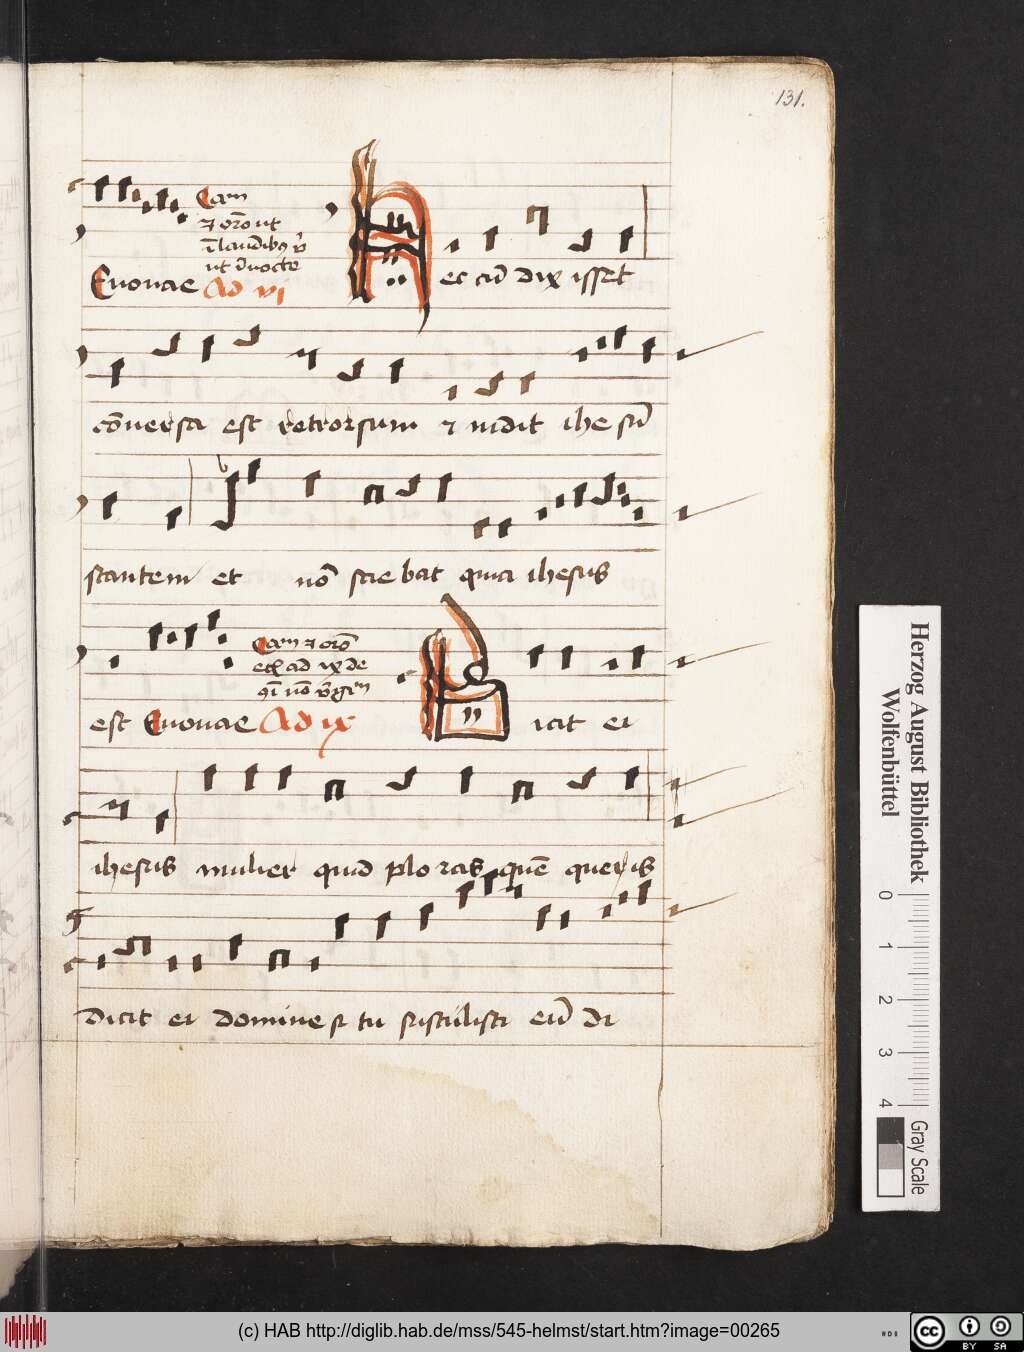 131.
Cam
⁊ orō ut
ī laudibꝰ
ut ī nocte
Euouae Ad vi
Hec cū dix isset
cōuersa est retrorsum ⁊ uidit ihe sū
stantem et nō scie bat quia ihesus
Cam ⁊ orō
ad ix de
est Euouae Ad ix
Dicit ei
ihesus mulier quid plo ras quē queris
dicit ei domine si tu sustulisti eū di
Herzog August Bibliothek
Wolfenbüttel
0 1 2 3 4
Gray Scale
(c) HAB http://diglib.hab.de/mss/545-helmst/start.htm?image=00265
cc BY SA